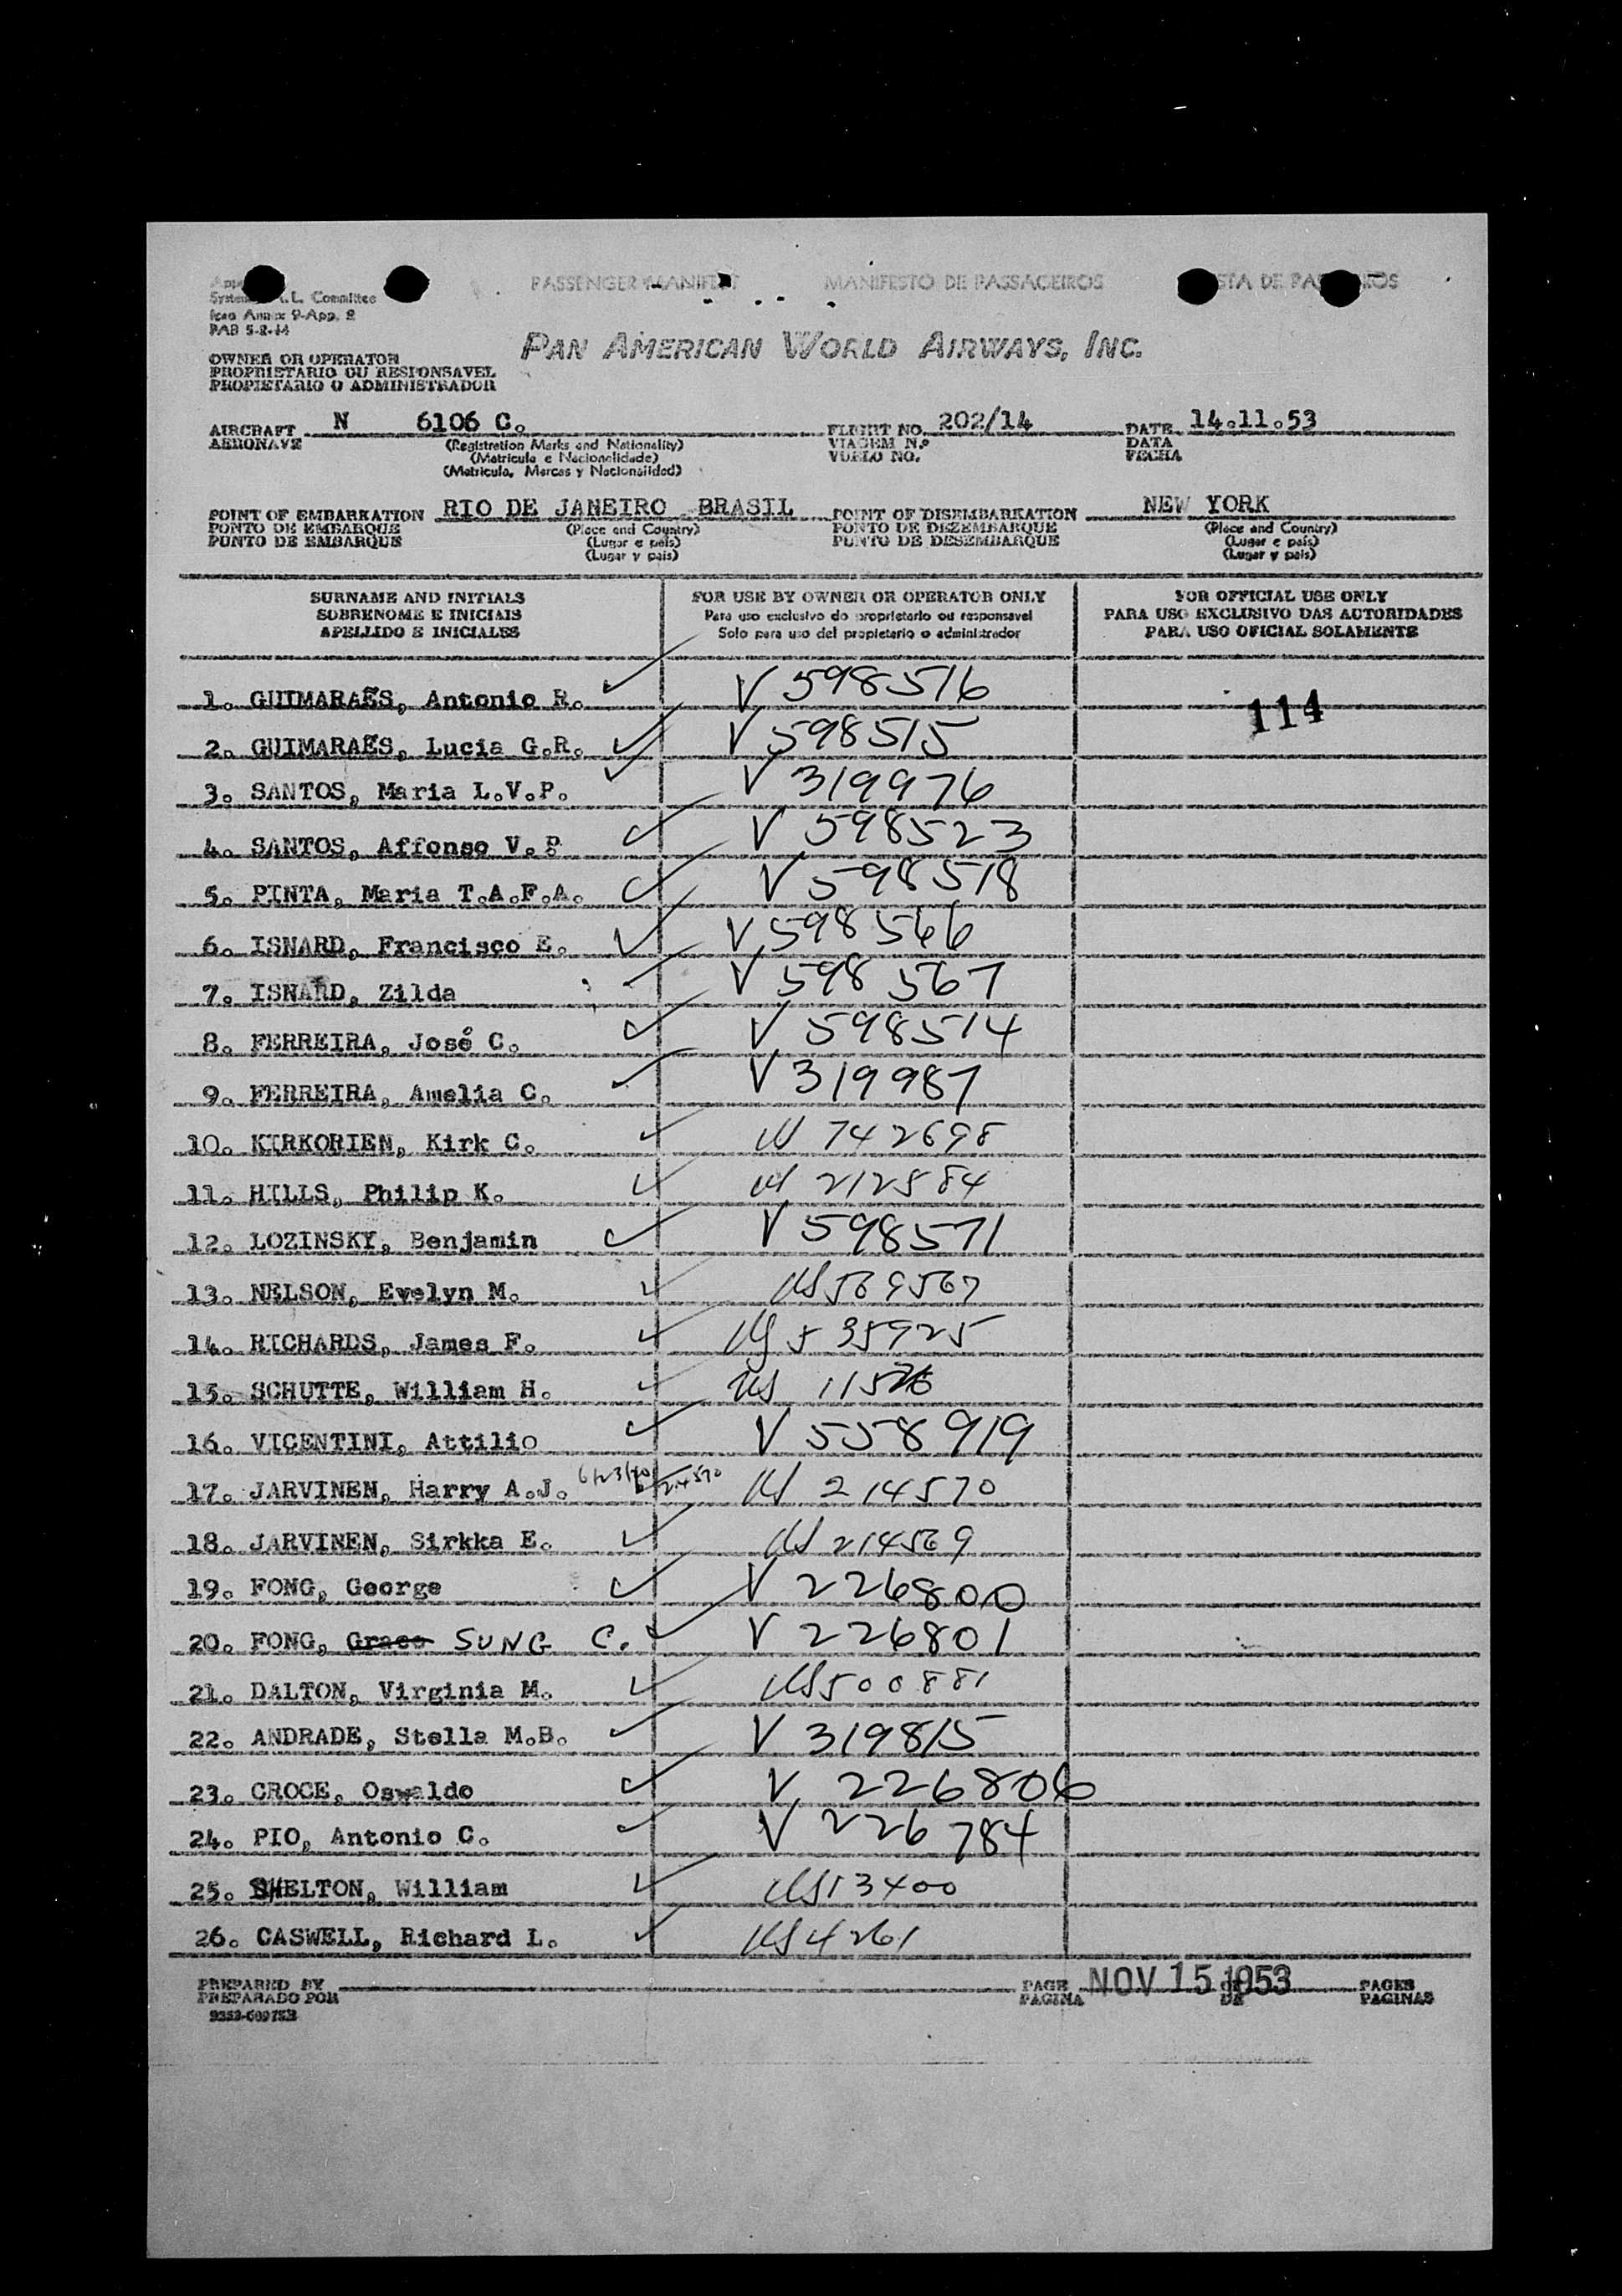 PASSENGER MANIFEST MANIFESTO DE PASSAGEIROS
L. Committee
Icao Annex 9-App. 2
PAB 5-2-14
PAN AMERICAN WORLD AIRWAYS, INC.
OWNER OR OPERATOR
PROPRIETARIO OU RESPONSAVEL
PROPIETARIO O ADMINISTRADOR
AIRCRAFT N 6106 C. FLIGHT NO. 202/14 DATE 14.11.53
AERONAVE (Registration Marks and Nationality) VIAGEM N.º DATA
(Matricula e Nacionalidade) VUELO NO. FECHA
(Matricula, Marcas y Nacionalidad)
POINT OF EMBARKATION RIO DE JANEIRO BRASIL POINT OF DISEMBARKATION NEW YORK
PONTO DE EMBARQUE (Place and Country) PONTO DE DEZEMBARQUE (Place and Country)
PUNTO DE EMBARQUE (Lugar e pais) PUNTO DE DESEMBARQUE (Lugar e pais)
(Lugar y pais) (Lugar y pais)
SURNAME AND INITIALS FOR USE BY OWNER OR OPERATOR ONLY FOR OFFICIAL USE ONLY
SOBRENOME E INICIAIS Para uso exclusivo do proprietario ou responsavel PARA USO EXCLUSIVO DAS AUTORIDADES
APELLIDO E INICIALES Solo para uso del propietario o administrador PARA USO OFICIAL SOLAMENTE
1. GUIMARAẼS, Antonio R. V 598516 114
2. GUIMARAẼS, Lucia G.R. V 598515
3. SANTOS, Maria L.V.P. V 319976
4. SANTOS, Affonso V.P V 598523
5. PINTA, Maria T.A.F.A. V 598518
6. ISNARD, Francisco E. V 598566
7. ISNARD, Zilda V 598567
8. FERREIRA, José C. V 598514
9. FERREIRA, Amelia C. V 319987
10. KIRKORIEN, Kirk C. US 742698
11. HILLS, Philip K. US 212584
12. LOZINSKY, Benjamin V 598571
13. NELSON, Evelyn M. US 569567
14. RICHARDS, James F. US 535925
15. SCHUTTE, William H. US
16. VICENTINI, Attilio V 558919
17. JARVINEN, Harry A.J. US 214570
18. JARVINEN, Sirkka E. US 214569
19. FONG, George V 226800
20. FONG, Grace SUNG C. V 226801
21. DALTON, Virginia M. US 500881
22. ANDRADE, Stella M.B. V 319815
23. CROCE, Oswaldo V 226806
24. PIO, Antonio C. V 226784
25. SHELTON, William US 13400
26. CASWELL, Richard L. US 4261
PREPARED BY PAGE NOV 15 1953 PAGES
PREPARADO POR PAGINA DE PAGINAS